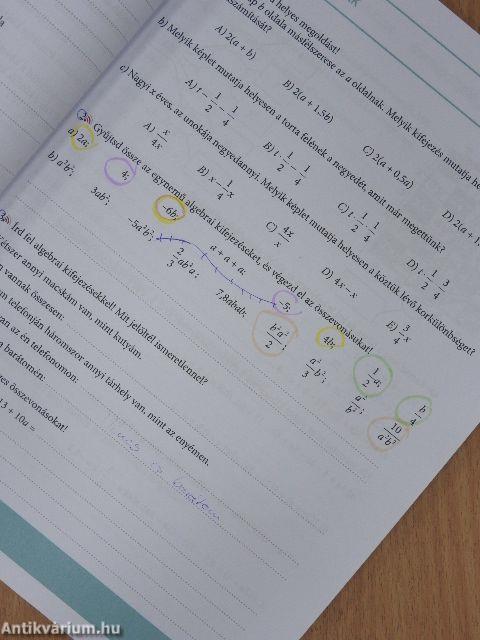 a helyes megoldást!
b oldala másfélszerese az a oldalnak. Melyik kifejezés mutatja he
számítását?
A) 2(a + b)
B) 2(a + 1,5b)
C) 2(a + 0,5a)
D) 2(a + 1,
b) Melyik képlet mutatja helyesen a torta felének a negyedét, amit már megettünk?
A) t – 1/2 – 1/4
B) t · 1/2 – 1/4
C) t · 1/2 · 1/4
D) t · 1/2 · 3/4
c) Nagyi x éves, az unokája negyedannyi. Melyik képlet mutatja helyesen a köztük lévő korkülönbséget?
A) x/4x
B) x – 1/4 x
C) 4x/x
D) 4x – x
E) 3/4 x
2. Gyűjtsd össze az egynemű algebrai kifejezéseket, és végezd el az összevonásokat!
a) 2a; 4; –6b; a + a + a; –5; 4b; 1/2 a; b/4
b) a²b²; 3ab²; –5a²b²; 2/3 ab²a; 7,8abab; b²a²/2; a²/3 b²; a²/b²; 10/a²b²
3. Írd fel algebrai kifejezésekkel! Mit jelöltél ismeretlennel?
étszer annyi macskám van, mint kutyám.
vannak összesen:
m telefonján háromszor annyi tárhely van, mint az enyémen.
van az én telefonomon:
a barátomén:
res összevonásokat!
13 + 10u =